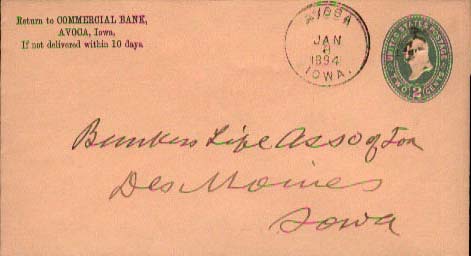 Return to COMMERCIAL BANK,
AVOCA, Iowa,
If not delivered within 10 days
JAN
8
1894
IOWA.
UNITED STATES POSTAGE
TWO 2 CENTS
Bankers Life Asso of Ioa
Des Moines
Iowa